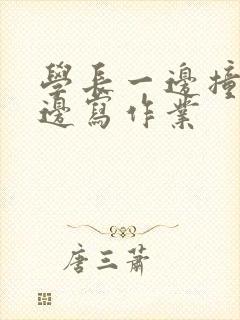 學長一邊撞
邊寫作業
唐三蕭